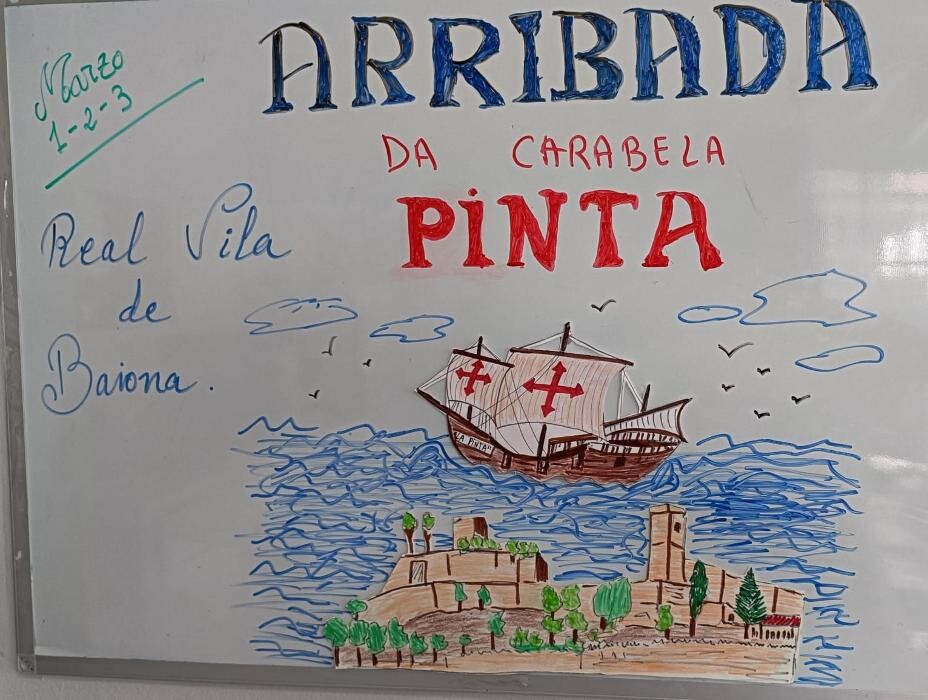 Marzo
1-2-3
ARRIBADA
DA CARABELA
PINTA
Real Vila
de
Baiona.
LA PINTA